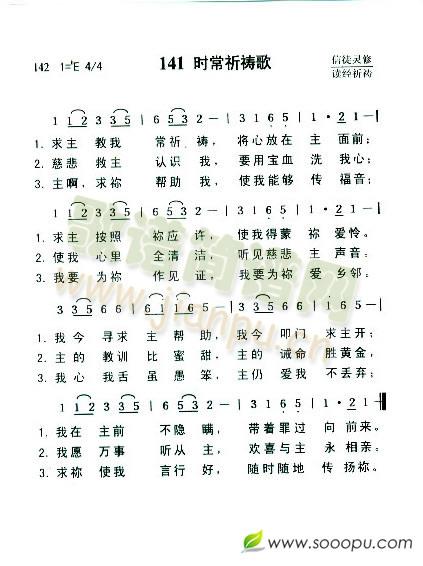 142 1=♭E 4/4
141 时常祈祷歌
信徒灵修
读经祈祷
1 1 2 3 3 5 | 6 · 5 3 − | 3 1 6 5 | 1 · 2 1 − |
1. 求主 教我 常祈 祷， 将心放在 主 面前；
2. 慈悲 救主 认识 我， 要用宝血 洗 我心；
3. 主啊，求祢 帮助 我， 使我能够 传 福音；
1. 求主 按照 祢应 许， 使我得蒙 祢 爱怜。
2. 使我 心里 全清 洁， 听见慈悲 主 声音：
3. 我要 为祢 作见 证， 我要为祢 爱 乡邻：
1. 我今 寻求 主 帮助， 我今 叩门 求主开；
2. 主的 教训 比 蜜甜， 主的 诫命 胜黄金，
3. 我心 我舌 虽 愚笨， 主仍 爱我 不丢弃；
1. 我在 主前 不隐 瞒， 带着罪过 向 前来。
2. 我愿 万事 听从 主， 欢喜与主 永 相亲；
3. 求祢 使我 言行 好， 随时随地 传 扬祢。
www.jianpu.cn
www.sooopu.com